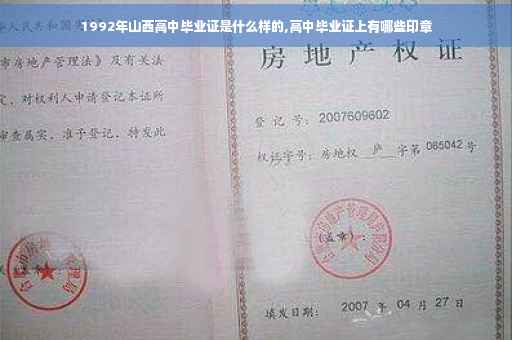 1992年山西高中毕业证是什么样的,高中毕业证上有哪些印章
人民共和国
市房地产管理法》及有关法
定，对权利人申请登记本证所
审查属实，准予登记，特发此
房地产权证
登记号：2007609602
权证字号：房地权 庐 字第 085042 号
(盖章)：
填发日期：2007 年 04 月 27 日